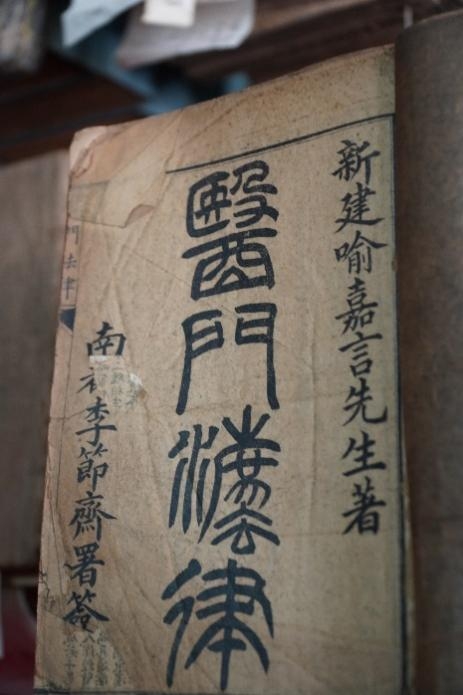 新建喻嘉言先生著
醫門灋律
南 季節齋署簽
門法律